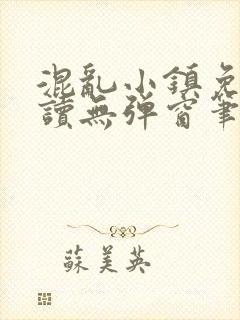 混亂小鎮免
讀無彈窗筆
蘇美英